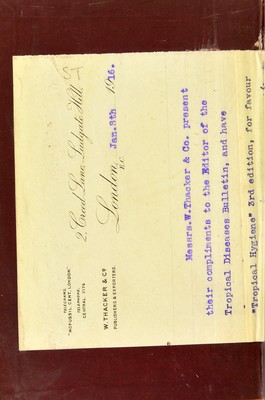 TELEGRAMS.
"MOFUSSIL, CENT, LONDON"
TELEPHONE.
CENTRAL 2176
W. THACKER & Cº
PUBLISHERS & EXPORTERS.
2, Creed Lane, Ludgate Hill,
London, Jan. 8th 1916.
E.C.
Messrs. W. Thacker & Co. present
their compliments to the Editor of the
Tropical Diseases Bulletin, and have
"Tropical Hygiene" 3rd edition, for favour